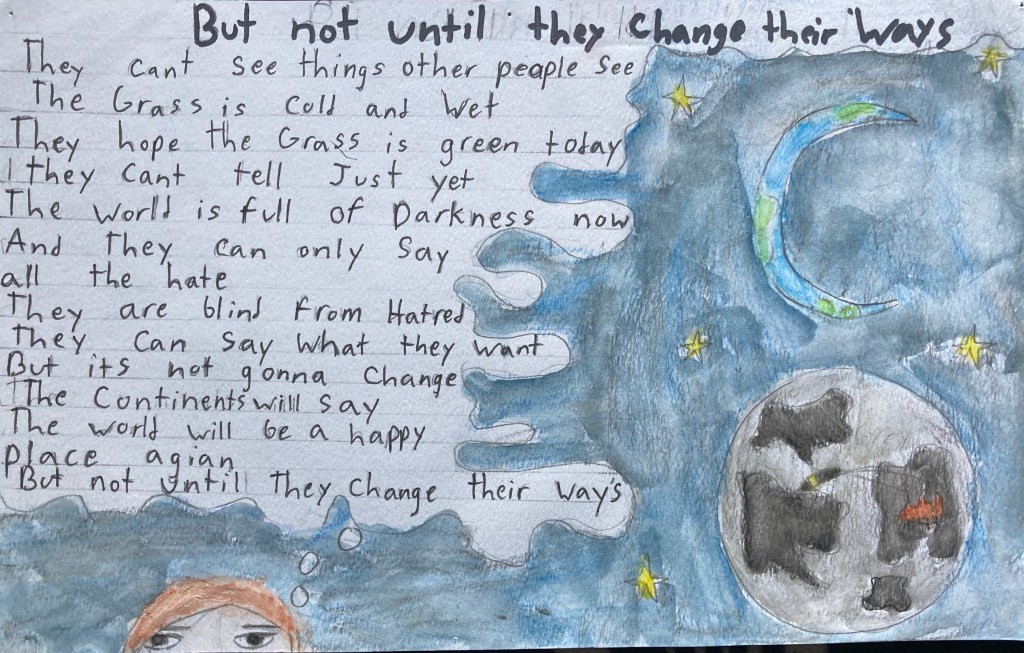 But not until they Change their Ways
They cant see things other peaple see
The Grass is Cold and Wet
They hope the Grass is green today
they cant tell Just yet
The world is full of Darkness now
And they can only Say
all the hate
They are blind From Hatred
They Can Say What they want
But its not gonna Change
The Continents will say
The world will be a happy
place agian
But not until They Change their way's